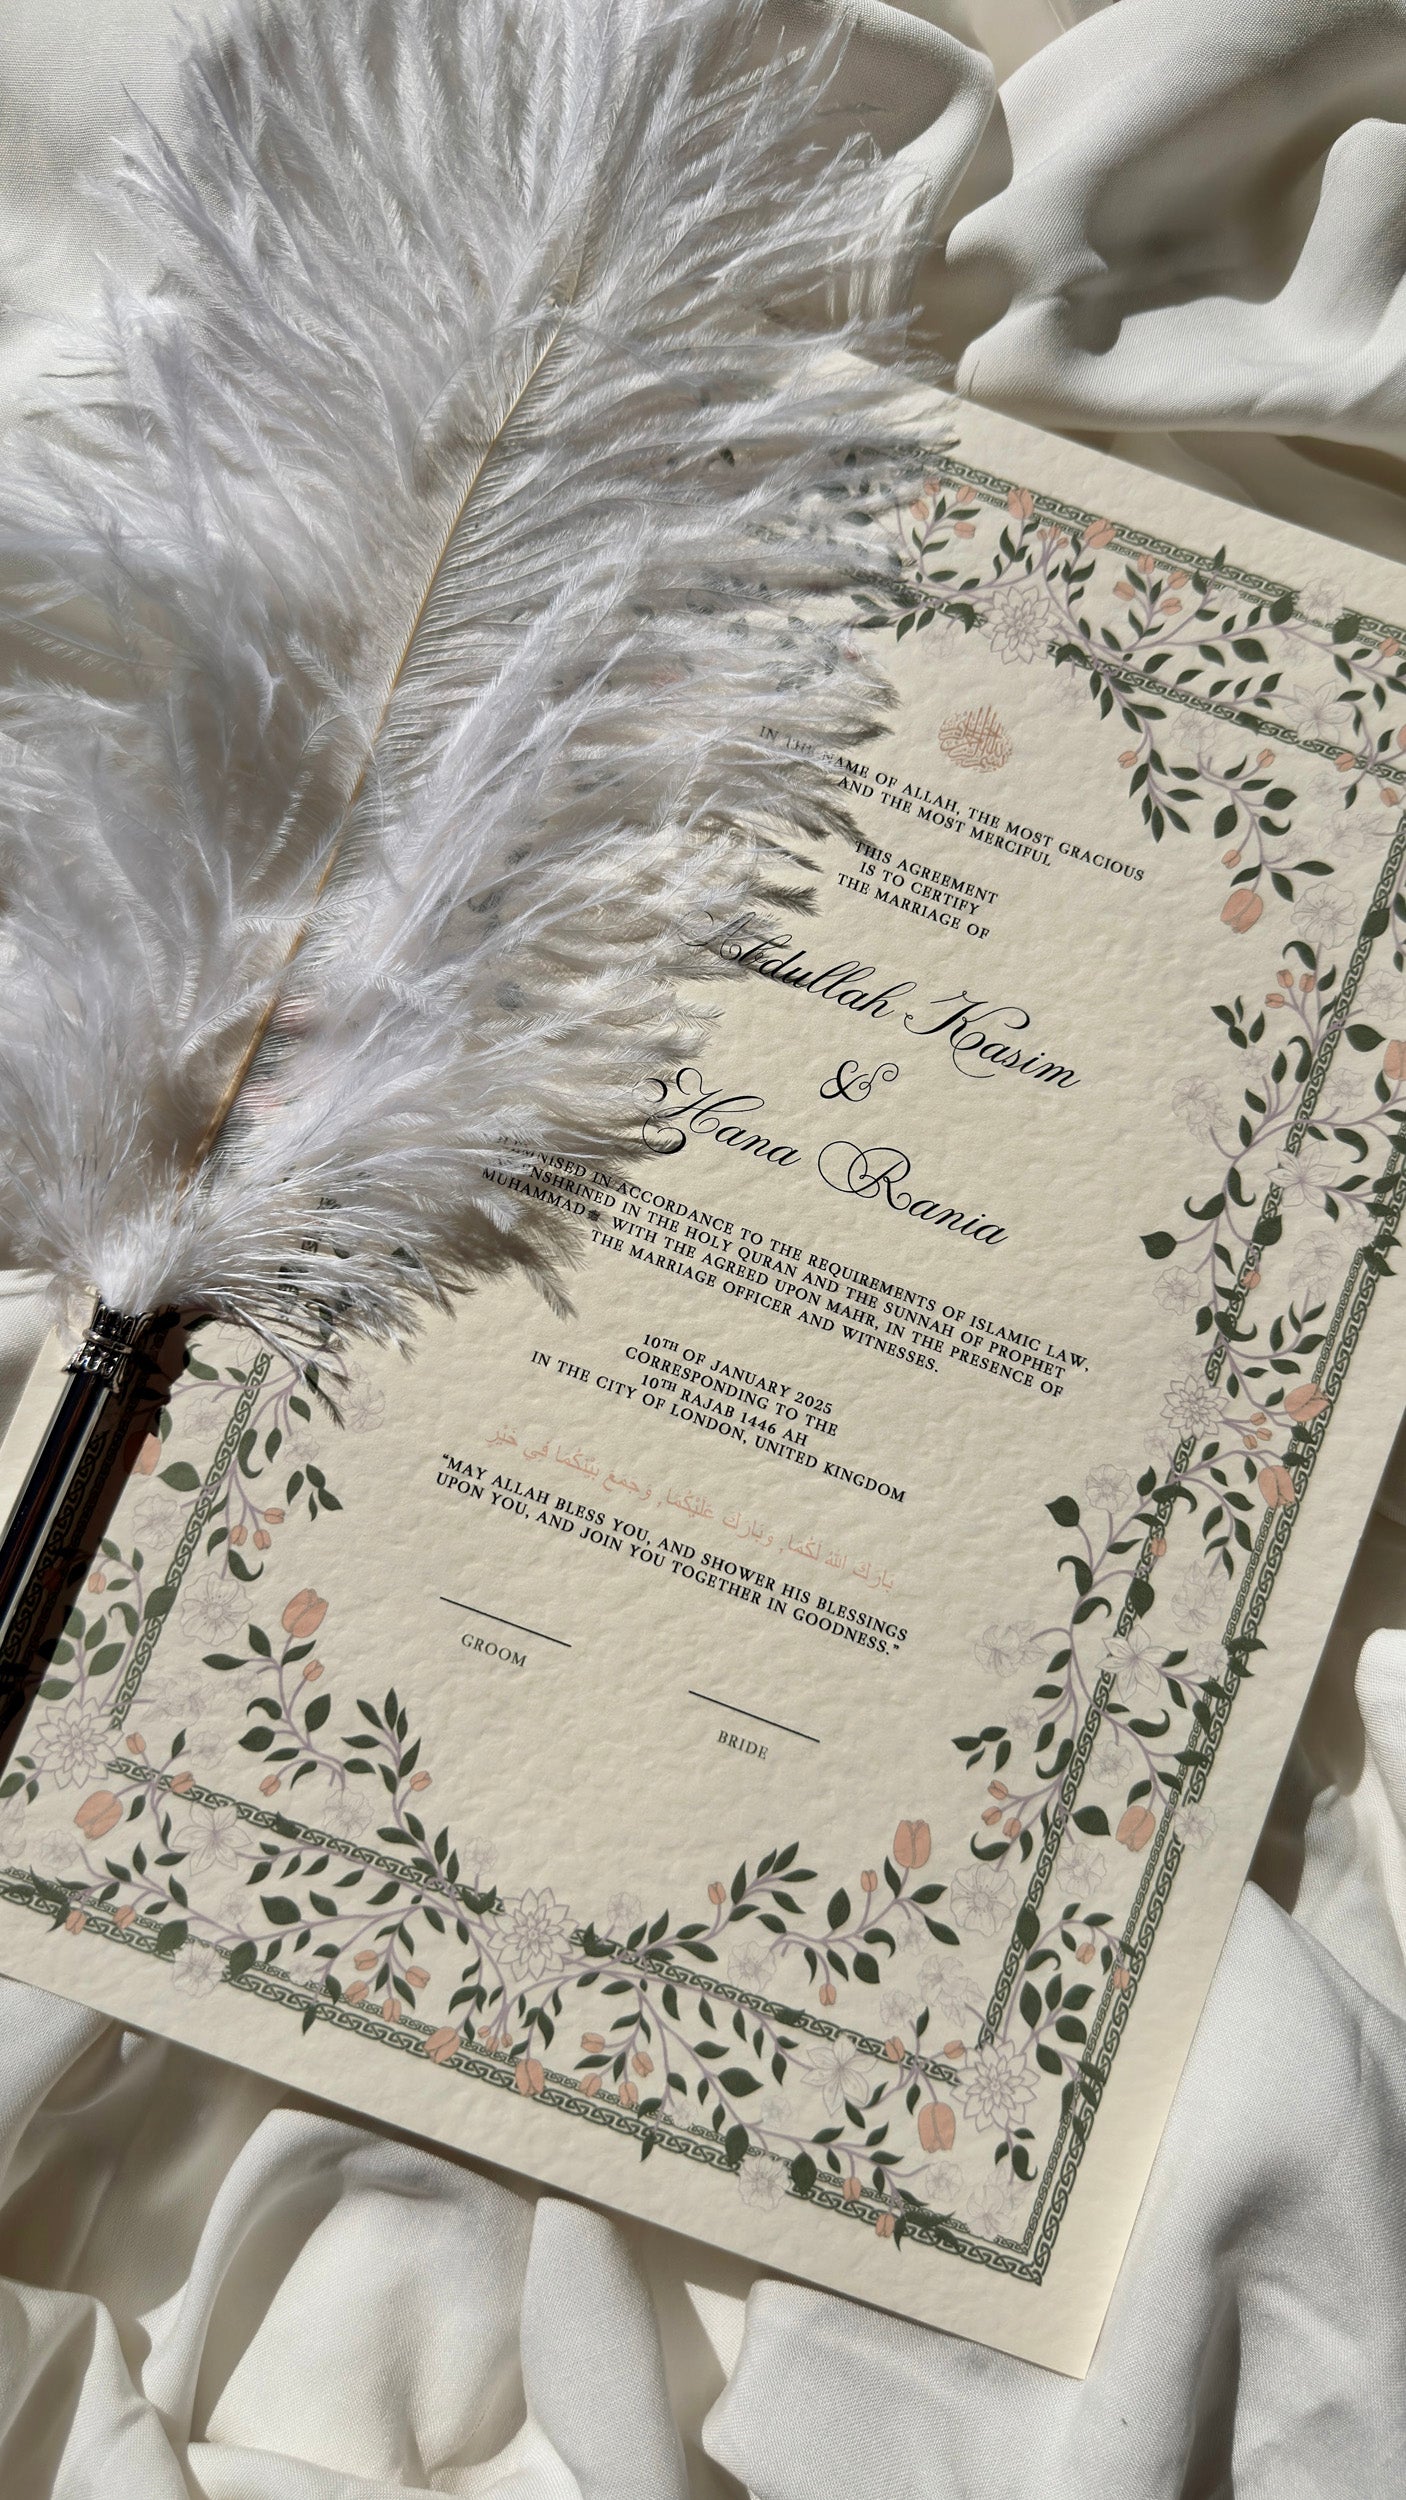 IN THE NAME OF ALLAH, THE MOST GRACIOUS
AND THE MOST MERCIFUL
THIS AGREEMENT
IS TO CERTIFY
THE MARRIAGE OF
Abdullah Kasim
&
Hana Rania
IN ACCORDANCE TO THE REQUIREMENTS OF ISLAMIC LAW,
IN THE HOLY QURAN AND THE SUNNAH OF PROPHET
MUHAMMAD ﷺ WITH THE AGREED UPON MAHR, IN THE PRESENCE OF
THE MARRIAGE OFFICER AND WITNESSES.
10TH OF JANUARY 2025
CORRESPONDING TO THE
10TH RAJAB 1446 AH
IN THE CITY OF LONDON, UNITED KINGDOM
بَارَكَ اللهُ لَكُمَا, وَبَارَكَ عَلَيْكُمَا, وَجَمَعَ بَيْنَكُمَا فِي خَيْرٍ
“MAY ALLAH BLESS YOU, AND SHOWER HIS BLESSINGS
UPON YOU, AND JOIN YOU TOGETHER IN GOODNESS.”
GROOM
BRIDE